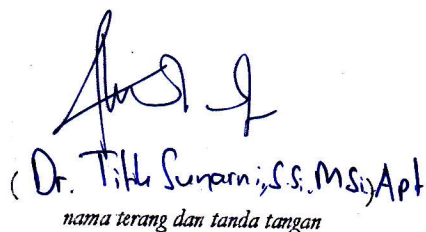 (Dr. Titik Sunarni, S.Si, M.Si, Apt
nama terang dan tanda tangan